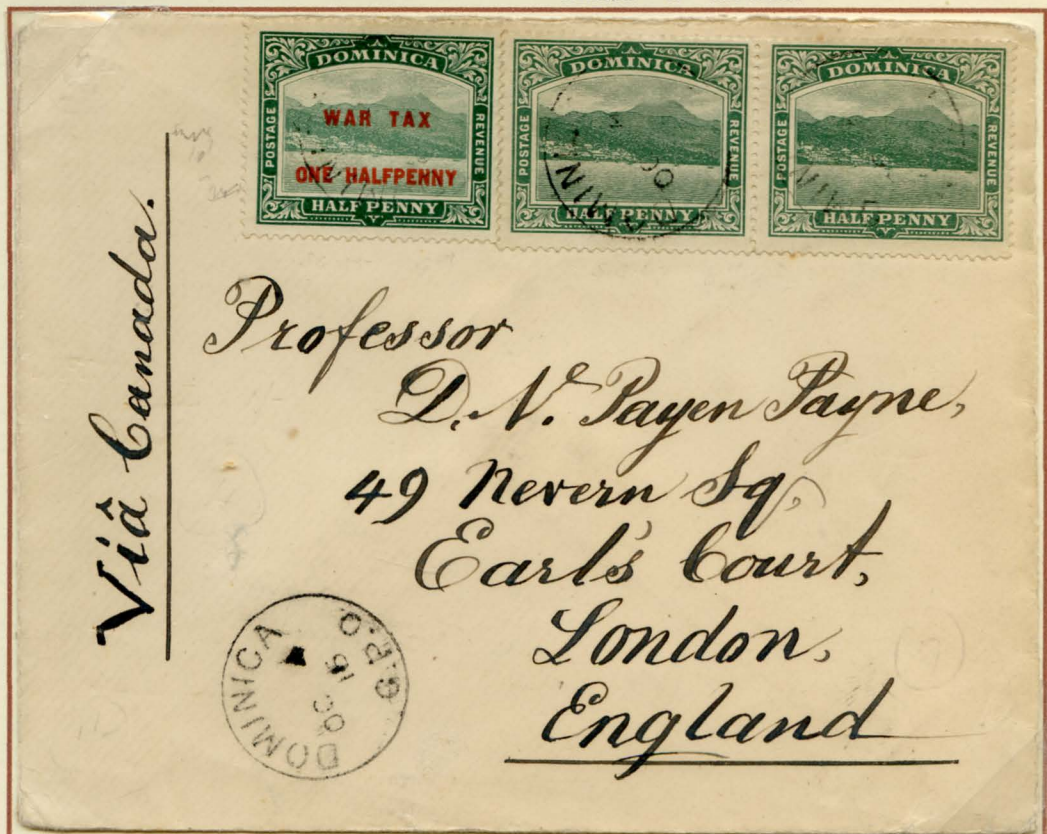 DOMINICA
POSTAGE
WAR TAX
ONE HALFPENNY
REVENUE
HALF PENNY
DOMINICA
POSTAGE
REVENUE
HALF PENNY
DOMINICA
POSTAGE
REVENUE
HALF PENNY
Viâ Canada.
Professor
D. N. Payen Payne,
49 Nevern Sq.
Earl's Court,
London,
England
G.P.O.
OC
DOMINICA